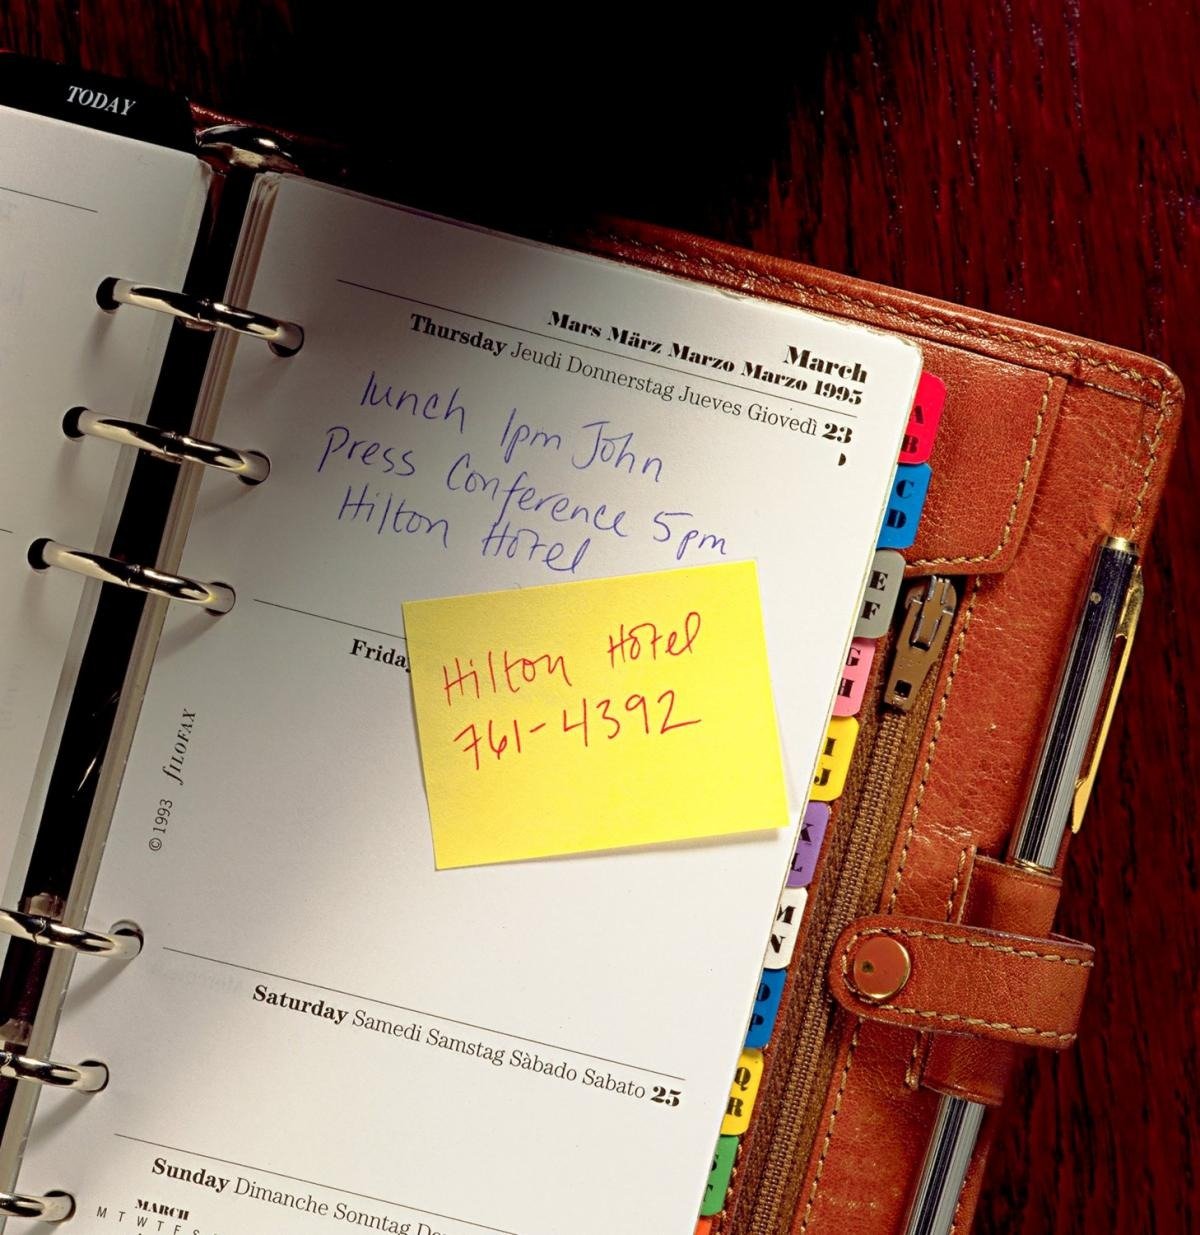 TODAY
March
Mars März Marzo Marzo 1995
Thursday Jeudi Donnerstag Jueves Giovedì 23
lunch 1pm John
Press Conference 5pm
Hilton Hotel
Hilton Hotel
761-4392
© 1993 fILOFAX
Saturday Samedi Samstag Sàbado Sabato 25
Sunday Dimanche Sonntag
MARCH
M T W T F S
A
B
C
D
E
F
G
H
I
J
K
L
M
N
O
P
Q
R
T